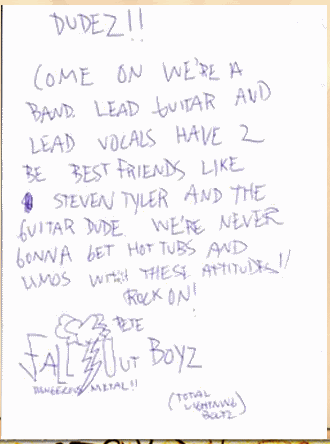 DUDEZ!!
COME ON WE'RE A
BAND. LEAD GUITAR AND
LEAD VOCALS HAVE 2
BE BEST FRIENDS LIKE
STEVEN TYLER AND THE
GUITAR DUDE WE'RE NEVER
GONNA GET HOT TUBS AND
LIMOS WITH THESE ATTITUDES!!
ROCK ON!
PETE
FALL OUT BOYZ
DANGEROUS METAL!!
(TOTAL
LIGHTNING
BOLTZ)